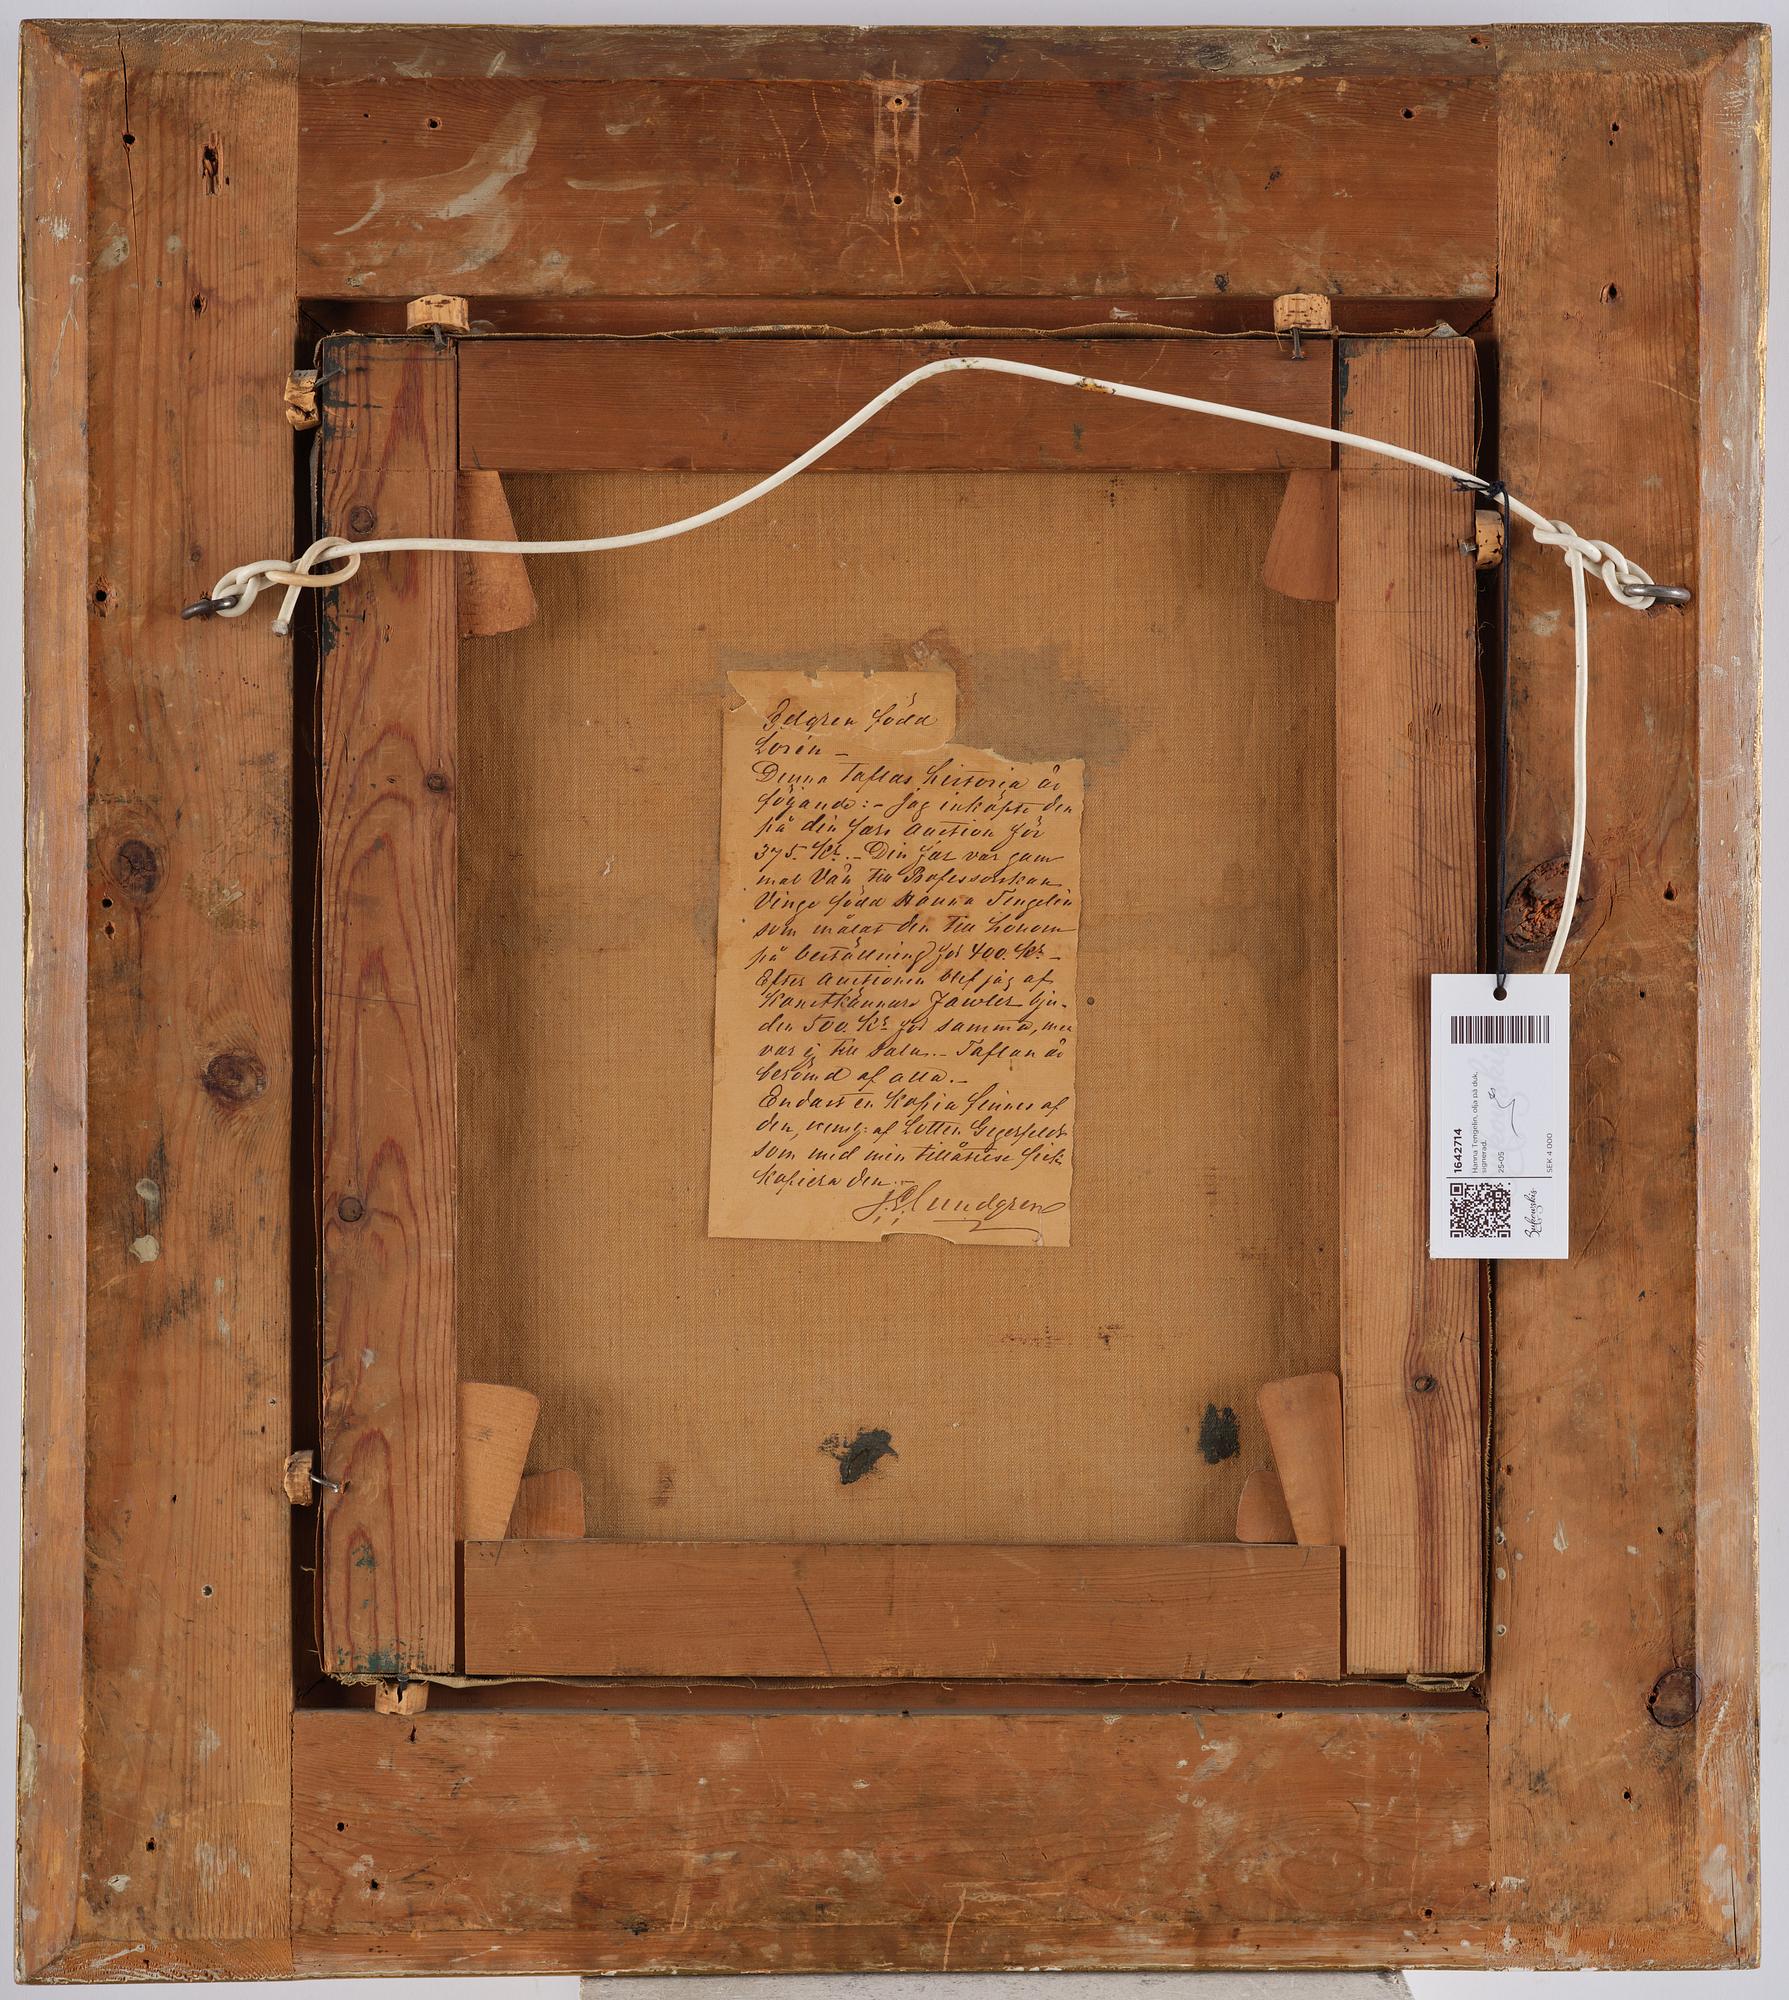 Zelgren född
Lorén –
Denna Taflas historia är
följande: – Jag inköpte den
på din fars Auction för
375. Kr. – Din far var gam
mal Vän till Professorskan
Vinge född Hanna Tengelin
som målat den till honom
på beställning för 400. Kr –
Efter Auctionen blef jag af
Konstkännare Fawler bju-
den 500. Kr för samma, men
var ej till salu. – Taflan är
berömd af alla. –
Endast en Kopia finnes af
den, neml: af Lotten Gegerfeldt
som med min tillåtelse fick
Kopiera den. –
Lundgren
1642714
Hanna Tengelin, olja på duk,
signerad.
25-05
SEK 4 000
Bukowskis